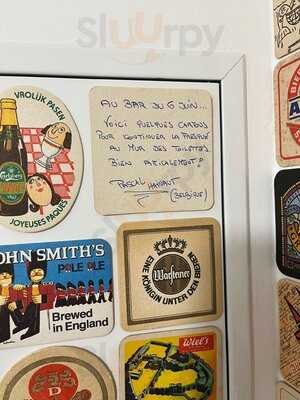 Sluurpy
VROLIJK PASEN
Carlsberg
JOYEUSES PAQUES
AU BAR DU 6 JUIN...
VOICI QUELQUES CARTONS
POUR CONTINUER LA FRESQUE
AU MUR DES TOILETTES
BIEN AMICALEMENT!
PASCAL
(BELGIQUE)
JOHN SMITH'S
PALE ALE
Brewed
in England
EINE KÖNIGIN UNTER DEN BIEREN
Warsteiner
Wiel's